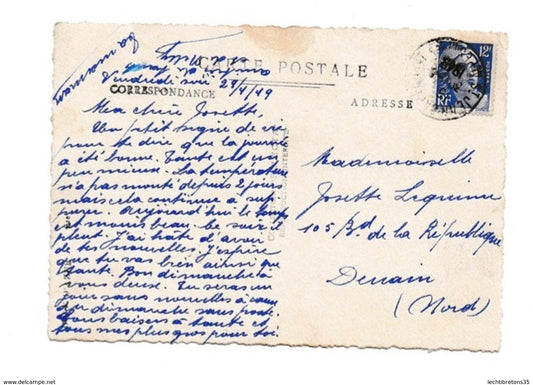 La maman
CARTE POSTALE
Vendredi soir 29/4/49
CORRESPONDANCE
ADRESSE
12F
RF
Ma chère Josette,
Un petit signe de vie
pour te dire que la journée
a été bonne. Tante est un
peu mieux. La température
n'a pas monté depuis 2 jours
mais cela continue à sup-
purer. Aujourd'hui le temps
est moins beau. Ce soir il
pleut. J'ai hâte d'avoir
de tes nouvelles. J'espère
que tu vas bien ainsi que
tante. Bon dimanche à
vous deux. Tu seras un
jour sans nouvelles à cause
du dimanche sans poste.
Bons baisers à tante et
tous mes plus gros pour toi.
Mademoiselle
Josette Lequime
105 Bd de la République
Denain
(Nord)
www.delcampe.net
lechtibretons35